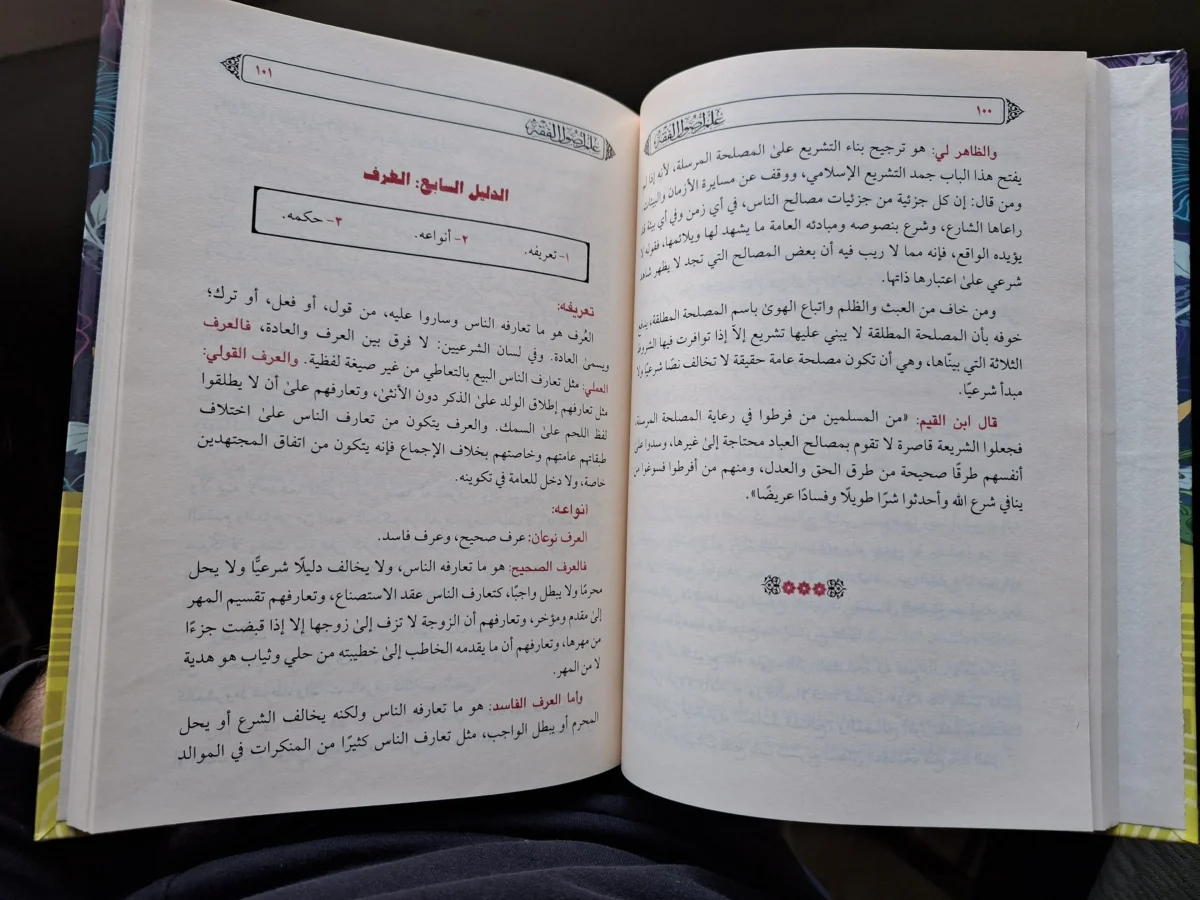 ١٠٠
علم أصول الفقه
والظاهر لي: هو ترجيح بناء التشريع علىٰ المصلحة المرسلة، لأنه إذا لم
يفتح هذا الباب جمد التشريع الإسلامي، ووقف عن مسايرة الأزمان والبيئات.
ومن قال: إن كل جزئية من جزئيات مصالح الناس، في أي زمن وفي أي بيئة قد
راعاها الشارع، وشرع بنصوصه ومبادئه العامة ما يشهد لها ويلائمها، فقوله لا
يؤيده الواقع، فإنه مما لا ريب فيه أن بعض المصالح التي تجد لا يظهر شاهد
شرعي علىٰ اعتبارها ذاتها.
ومن خاف من العبث والظلم واتباع الهوىٰ باسم المصلحة المطلقة، يدفع
خوفه بأن المصلحة المطلقة لا يبني عليها تشريع إلاّ إذا توافرت فيها الشروط
الثلاثة التي بينّاها، وهي أن تكون مصلحة عامة حقيقة لا تخالف نصًا شرعيًا ولا
مبدأ شرعيًا.
قال ابن القيم: «من المسلمين من فرطوا في رعاية المصلحة المرسلة،
فجعلوا الشريعة قاصرة لا تقوم بمصالح العباد محتاجة إلىٰ غيرها، وسدوا علىٰ
أنفسهم طرقًا صحيحة من طرق الحق والعدل، ومنهم من أفرطوا فسوغوا ما
ينافي شرع الله وأحدثوا شرًا طويلًا وفسادًا عريضًا».
١٠١
علم أصول الفقه
الدليل السابع: العُرف
١- تعريفه. ٢- أنواعه. ٣- حكمه.
تعريفه:
العُرف هو ما تعارفه الناس وساروا عليه، من قول، أو فعل، أو ترك؛
ويسمىٰ العادة. وفي لسان الشرعيين: لا فرق بين العرف والعادة، فالعرف
العملي: مثل تعارف الناس البيع بالتعاطي من غير صيغة لفظية. والعرف القولي:
مثل تعارفهم إطلاق الولد علىٰ الذكر دون الأنثىٰ، وتعارفهم علىٰ أن لا يطلقوا
لفظ اللحم علىٰ السمك. والعرف يتكون من تعارف الناس علىٰ اختلاف
طبقاتهم عامتهم وخاصتهم بخلاف الإجماع فإنه يتكون من اتفاق المجتهدين
خاصة، ولا دخل للعامة في تكوينه.
أنواعه:
العرف نوعان: عرف صحيح، وعرف فاسد.
فالعرف الصحيح: هو ما تعارفه الناس، ولا يخالف دليلًا شرعيًّا ولا يحل
محرمًا ولا يبطل واجبًا، كتعارف الناس عقد الاستصناع، وتعارفهم تقسيم المهر
إلىٰ مقدم ومؤخر، وتعارفهم أن الزوجة لا تزف إلىٰ زوجها إلا إذا قبضت جزءًا
من مهرها، وتعارفهم أن ما يقدمه الخاطب إلىٰ خطيبته من حلي وثياب هو هدية
لا من المهر.
وأما العرف الفاسد: هو ما تعارفه الناس ولكنه يخالف الشرع أو يحل
المحرم أو يبطل الواجب، مثل تعارف الناس كثيرًا من المنكرات في الموالد